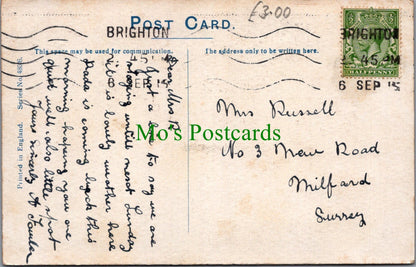 £3.00
POST CARD.
BRIGHTON
BRIGHTON
.45 PM
6 SEP 15
SEP 15
HALFPENNY
This space may be used for communication.
The address only to be written here.
Dear Mrs R
Just a line to say we are
staying until next Sunday
it is lovely weather here
Dada is coming back this
morning hoping you are
quite well also little spot
Yours sincerely A
Mrs Russell
No 3 New Road
Milford
Surrey
Printed in England.
Series No.
Mo's Postcards